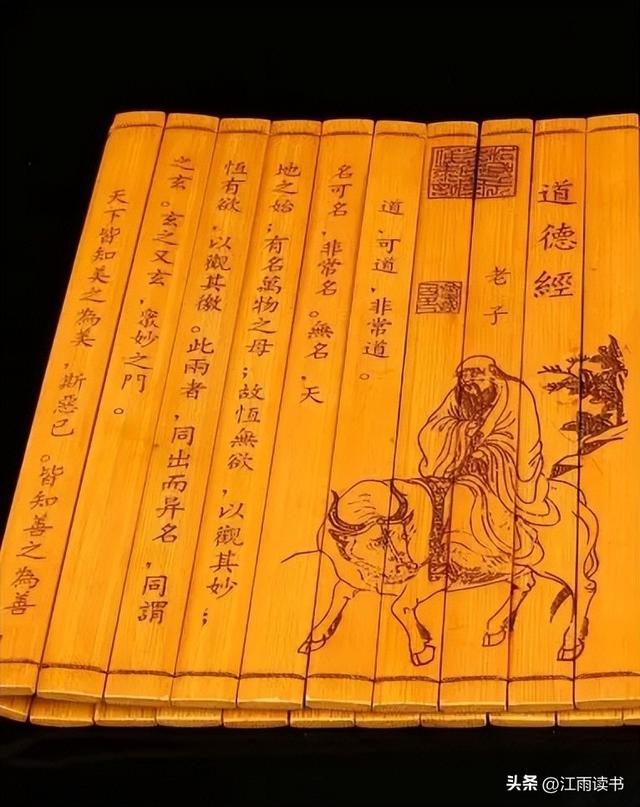 道德經
老子
道,可道,非常道。
名可名,非常名。無名,天
地之始;有名萬物之母;故恆無欲,以觀其妙;
恆有欲,以觀其徼。此兩者,同出而异名,同謂
之玄。玄之又玄,衆妙之门。
天下皆知美之為美,斯惡已。皆知善之為善
头条 @江雨读书